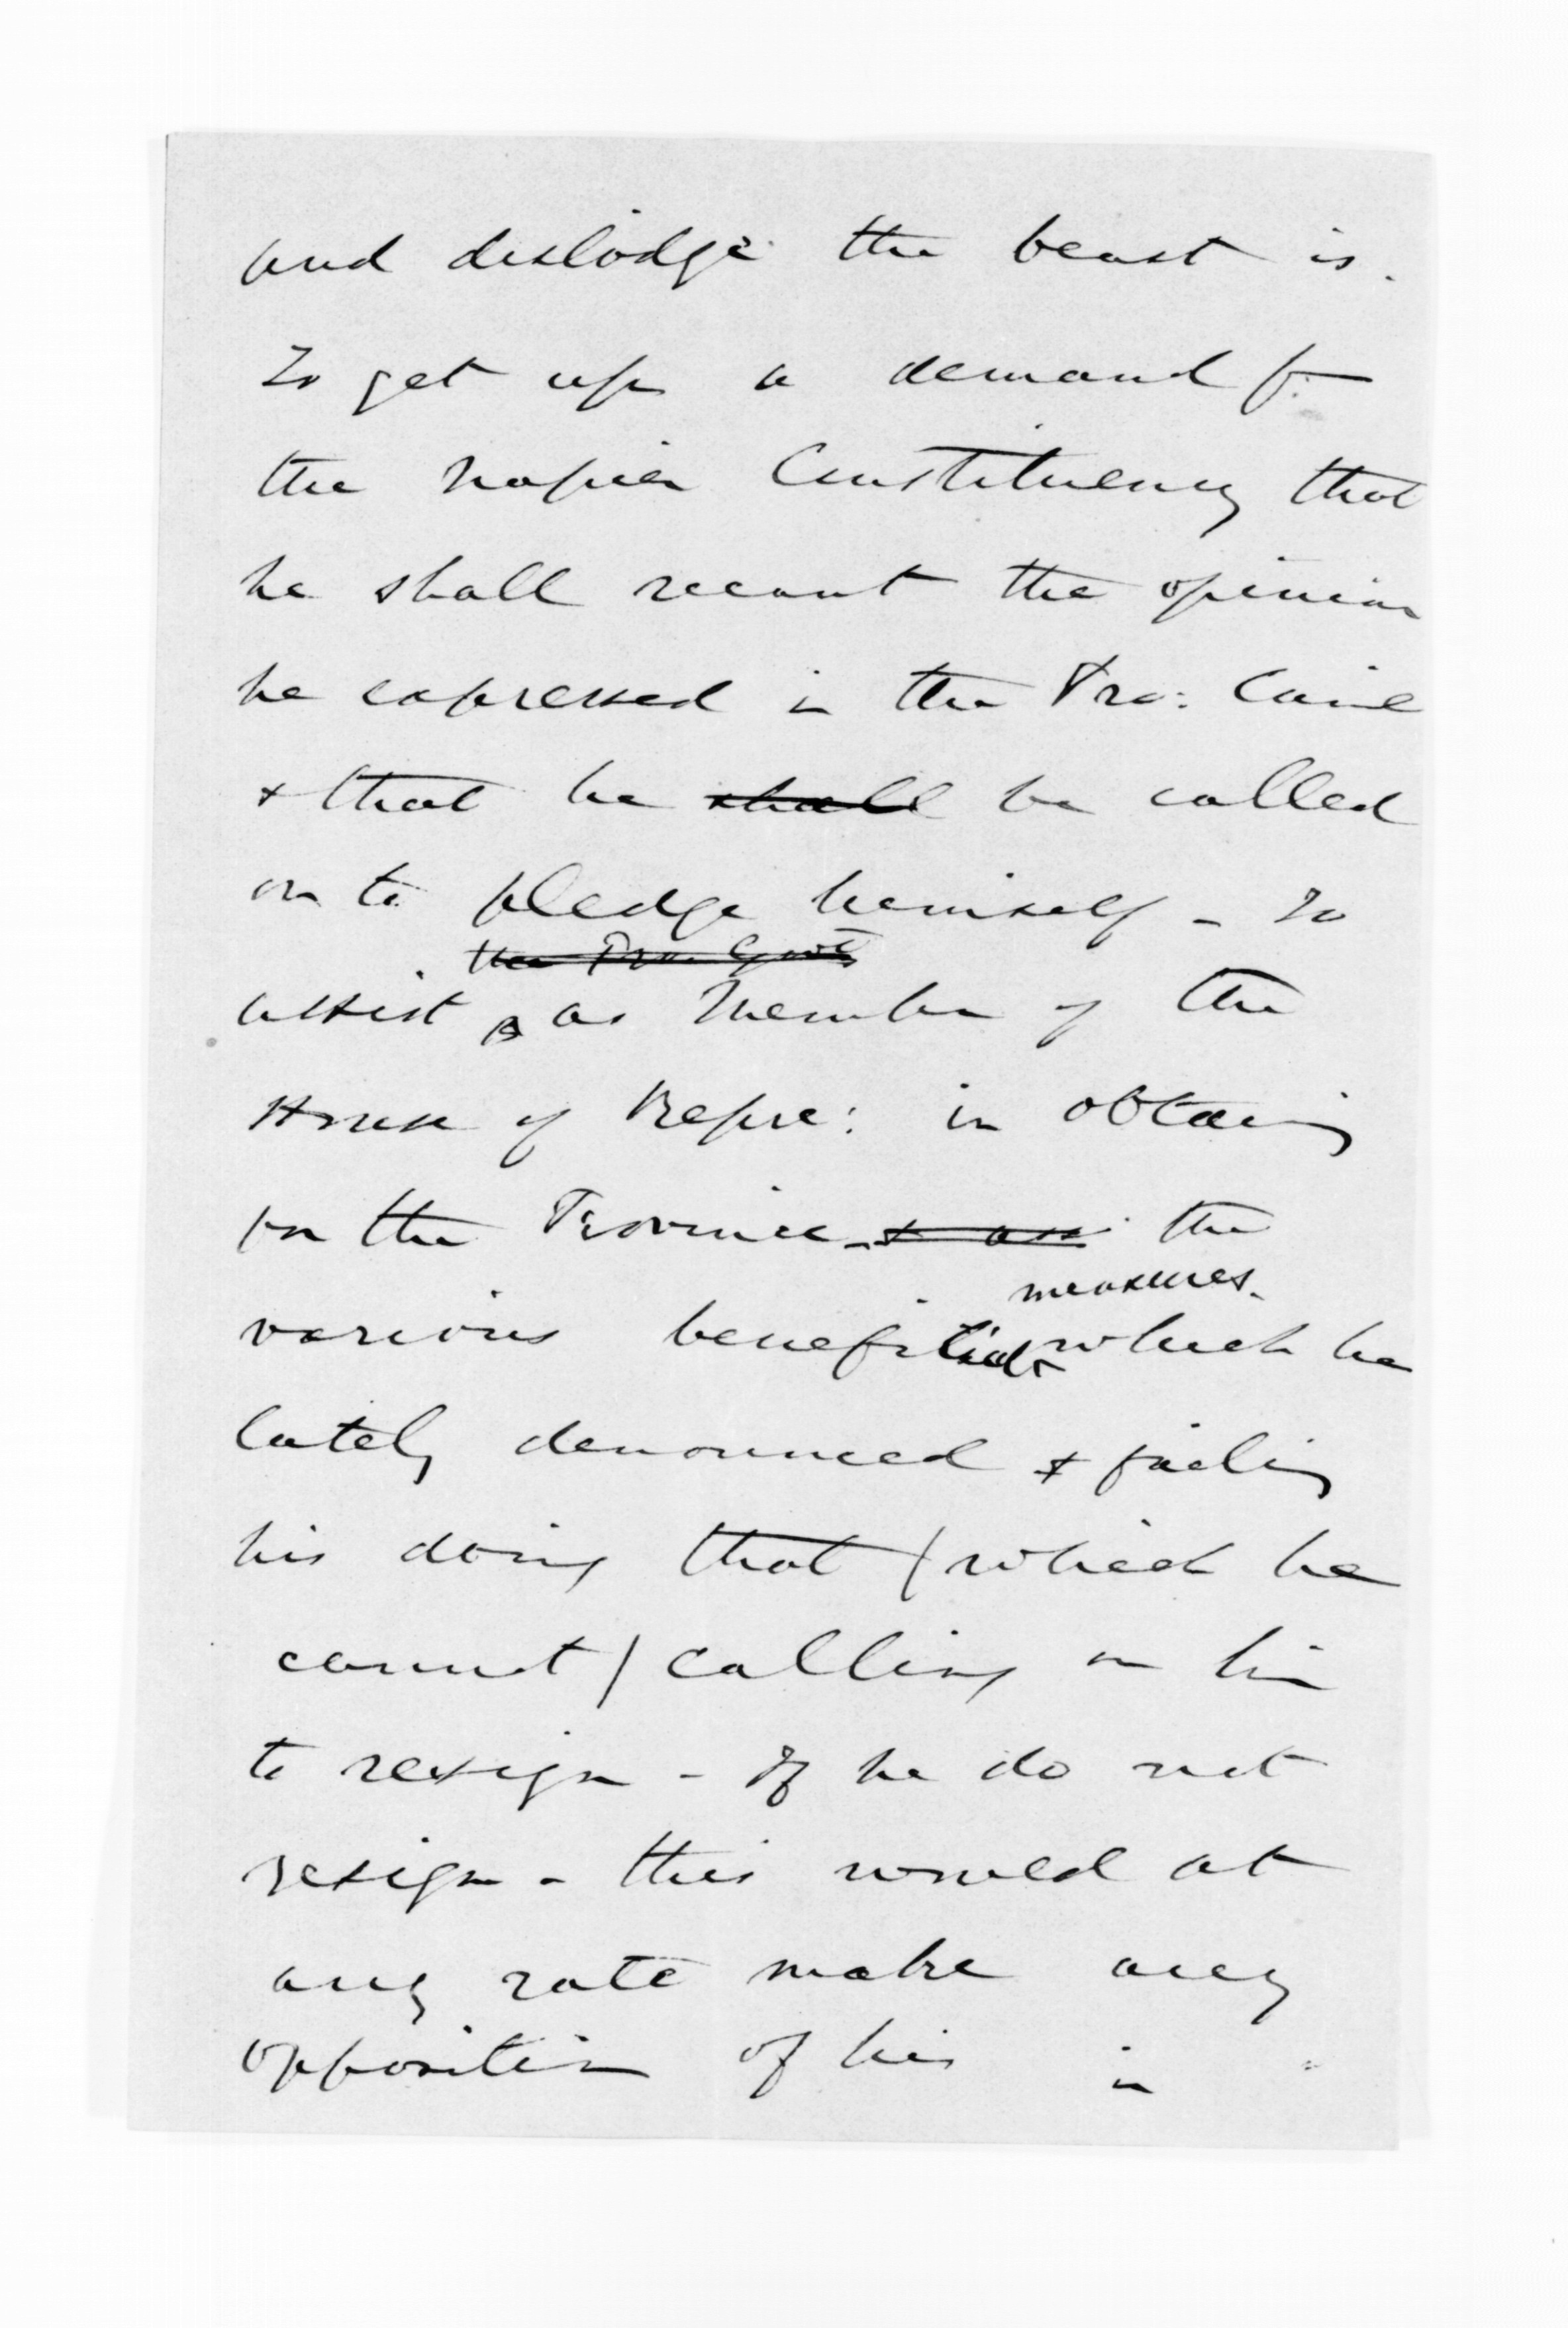 and dislodge the beast is.
To get up a demand fr
the Napier Constituency that
he shall recant the opinion
he expressed in the Pro: Councl
& that he shall be called
on to pledge himself - to
the Pro. Govt
assist as Member of the
House of Repre: in obtaining
for the Province the
measures.
various beneficial which he
lately denounced & failing
his doing that (which he
cannot) calling on him
to resign - If he do not
resign - this would at
any rate make any
opposition of his in